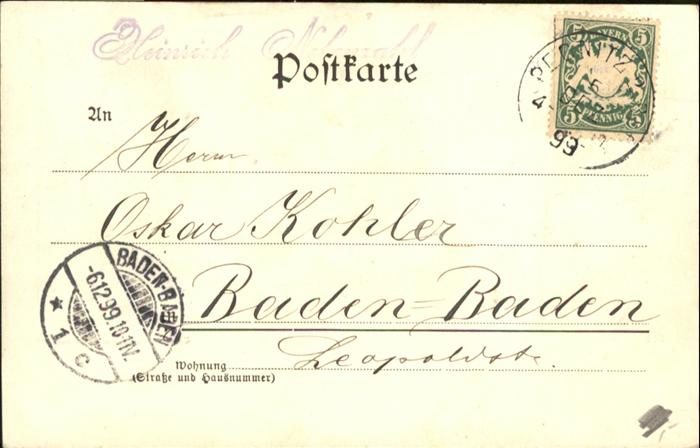 Heinrich
Postkarte
5 BAYERN 5
5 PFENNIG 5
5
99
An
Herrn
Oskar Kohler
BADEN-BADEN
-6.12.99.10-11V.
* 1 c
Baden=Baden
Leopoldstr.
Wohnung
(Straße und Hausnummer)